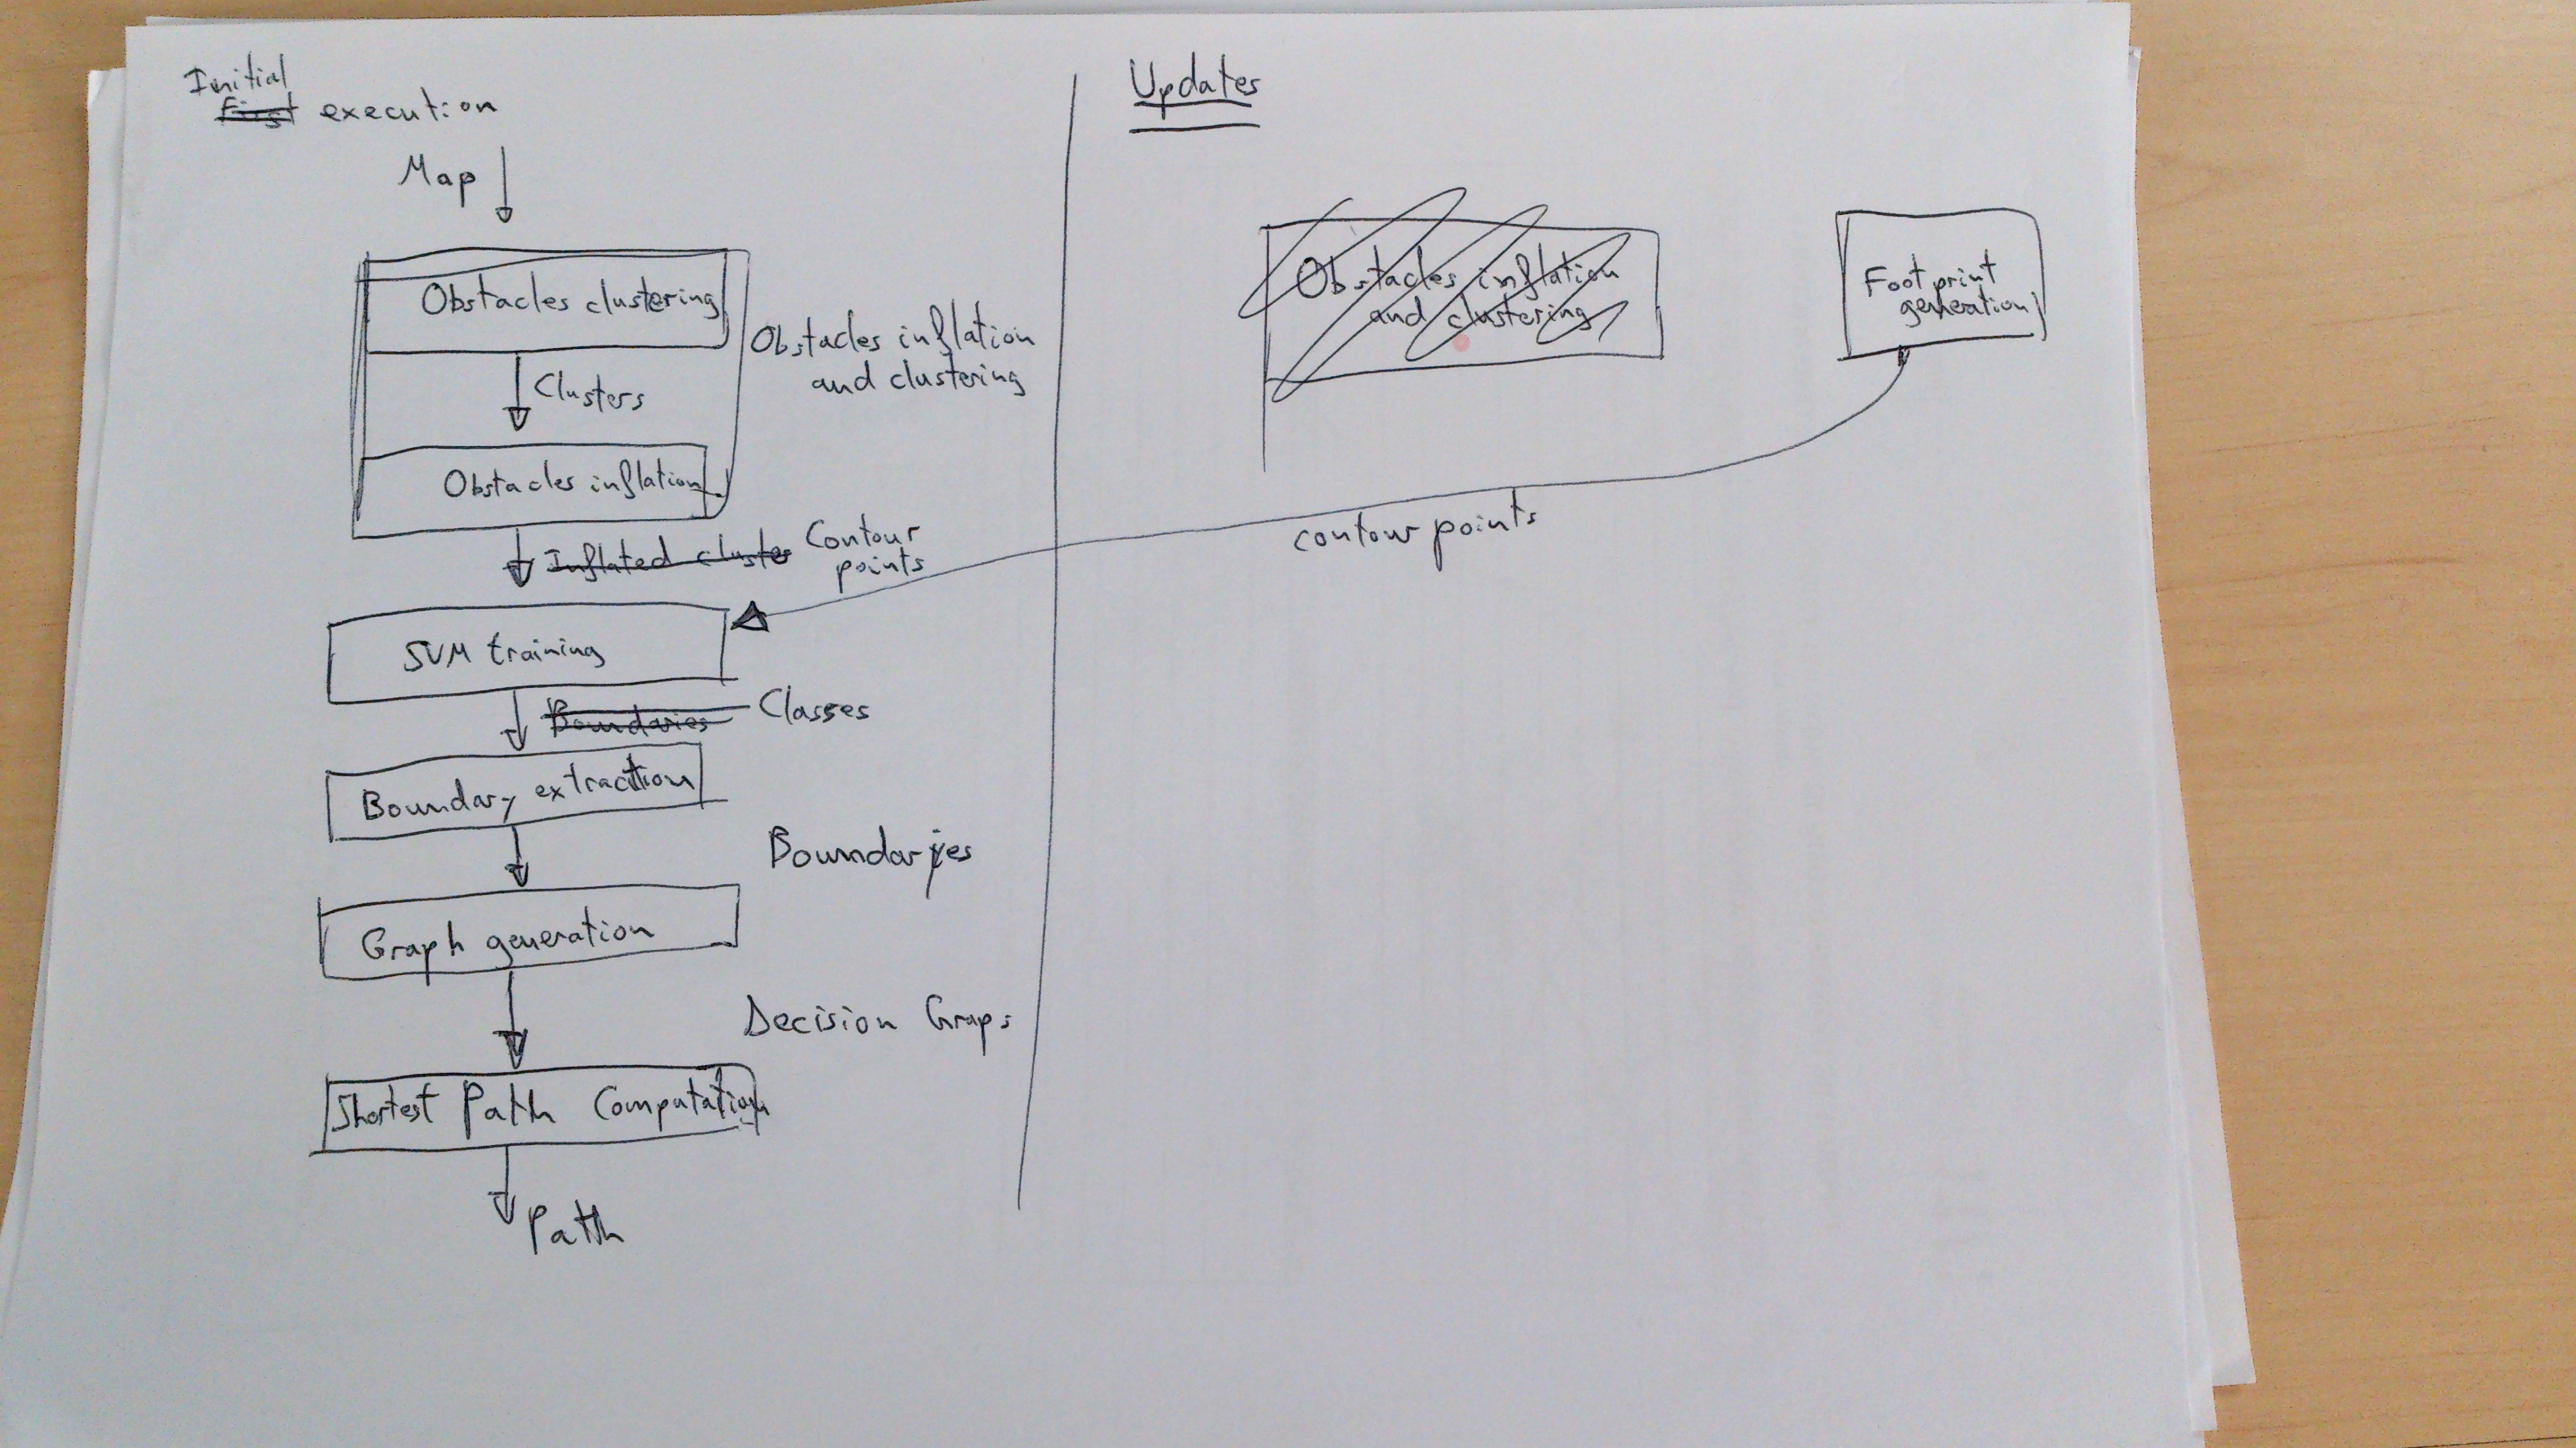 Initial
First execution
Map
Obstacles clustering
Clusters
Obstacles inflation
and clustering
Obstacles inflation
Inflated cluste
Contour
points
SVM training
Boundaries
Classes
Boundary extraction
Boundaries
Graph generation
Decision Graps
Shortest Path Computation
Path
Updates
Obstacles inflation
and clustering
Footprint
generation
contour points